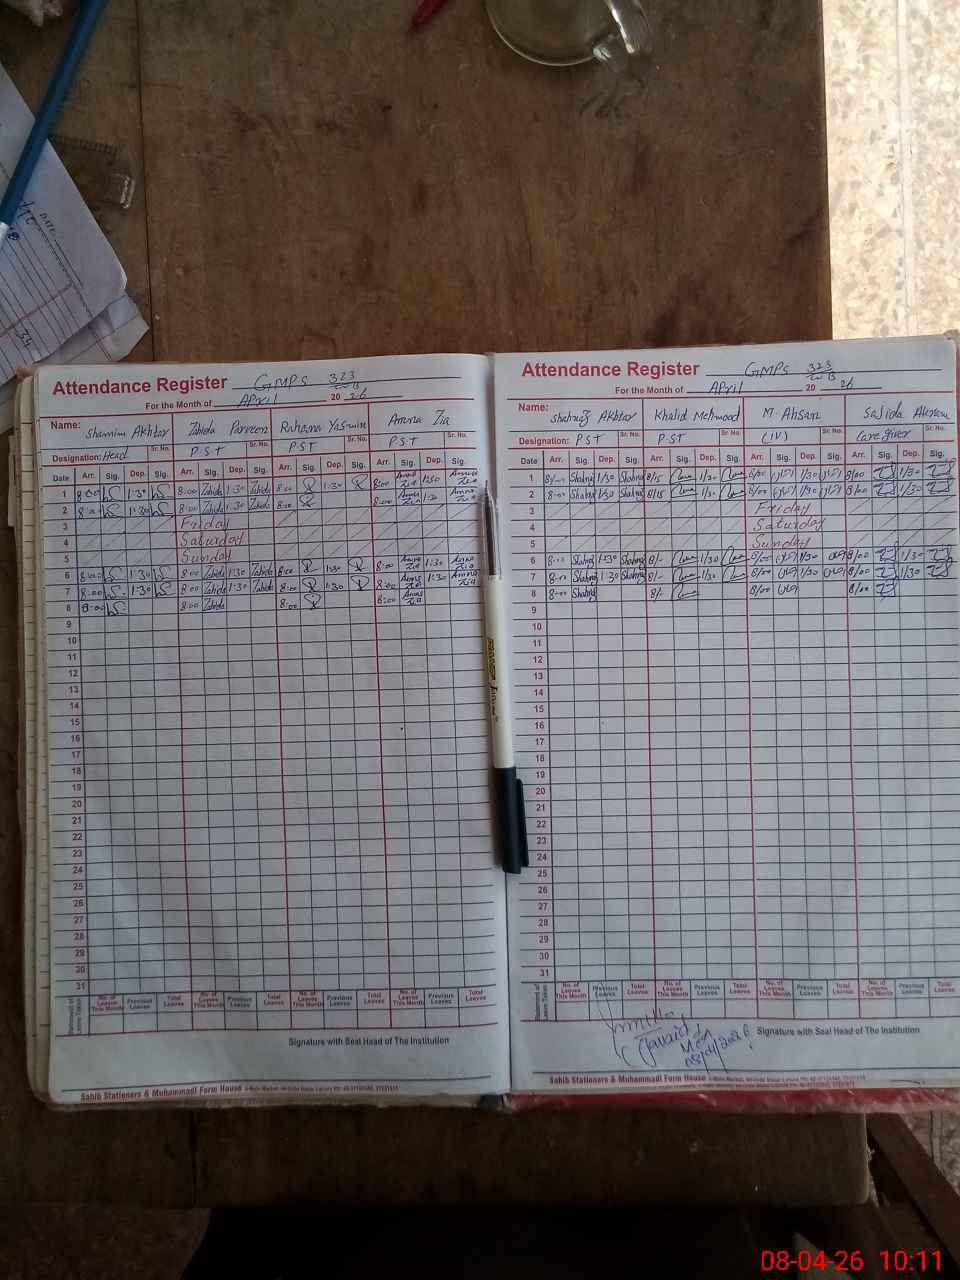 Attendance Register GMPS 323/WB
For the Month of APril 20 26
Name: Shamim Akhtar Zahida Parveen Ruhana Yasmin Amna Zia
Designation: Head Sr. No. PST Sr. No. PST Sr. No. PST Sr. No.
Date Arr. Sig. Dep. Sig. Arr. Sig. Dep. Sig. Arr. Sig. Dep. Sig. Arr. Sig. Dep. Sig.
1 8:00 1:30 8:00 Zahida 1:30 Zahida 8:00 1:30 8:00 Amna Zia 1:30 Amna Zia
2 8:00 1:30 8:00 Zahida 1:30 Zahida 8:00 8:00 Amna Zia 1:30 Amna Zia
3 Friday
4 Saturday
5 Sunday
6 8:00 1:30 8:00 Zahida 1:30 Zahida 8:00 1:30 8:00 Amna Zia 1:30 Amna Zia
7 8:00 1:30 8:00 Zahida 1:30 Zahida 8:00 1:30 8:00 Amna Zia 1:30 Amna Zia
8 8:00 8:00 Zahida 8:00 8:00 Amna Zia
9
10
11
12
13
14
15
16
17
18
19
20
21
22
23
24
25
26
27
28
29
30
31
No. of Leaves This Month Previous Leaves Total Leaves No. of Leaves This Month Previous Leaves Total Leaves No. of Leaves This Month Previous Leaves Total Leaves No. of Leaves This Month Previous Leaves Total Leaves
Signature with Seal Head of The Institution
Sahib Stationers & Muhammadi Form House
Attendance Register GMPS 323/WB
For the Month of APril 20 26
Name: Shahnaz Akhtar Khalid Mehmood M. Ahsan Sajida Akram
Designation: PST Sr. No. PST Sr. No. (IV) Sr. No. Care giver Sr. No.
Date Arr. Sig. Dep. Sig. Arr. Sig. Dep. Sig. Arr. Sig. Dep. Sig. Arr. Sig. Dep. Sig.
1 8/-- Shahnaz 1/30 Shahnaz 8/15 1/30 8/00 1/30 8/00 1/30
2 8-00 Shahnaz 1/30 Shahnaz 8/15 1/30 8/00 1/30 8/00 1/30
3 Friday
4 Saturday
5 Sunday
6 8-00 Shahnaz 1-30 Shahnaz 8/- 1/30 8/00 1/30 8/00 1/30
7 8-00 Shahnaz 1-30 Shahnaz 8/- 1/30 8/00 1/30 8/00 1/30
8 8-00 Shahnaz 8/- 8/00 8/00
9
10
11
12
13
14
15
16
17
18
19
20
21
22
23
24
25
26
27
28
29
30
31
No. of Leaves This Month Previous Leaves Total Leaves No. of Leaves This Month Previous Leaves Total Leaves No. of Leaves This Month Previous Leaves Total Leaves No. of Leaves This Month Previous Leaves Total Leaves
Signature with Seal Head of The Institution
Sahib Stationers & Muhammadi Form House
DATE
08-04-26 10:11